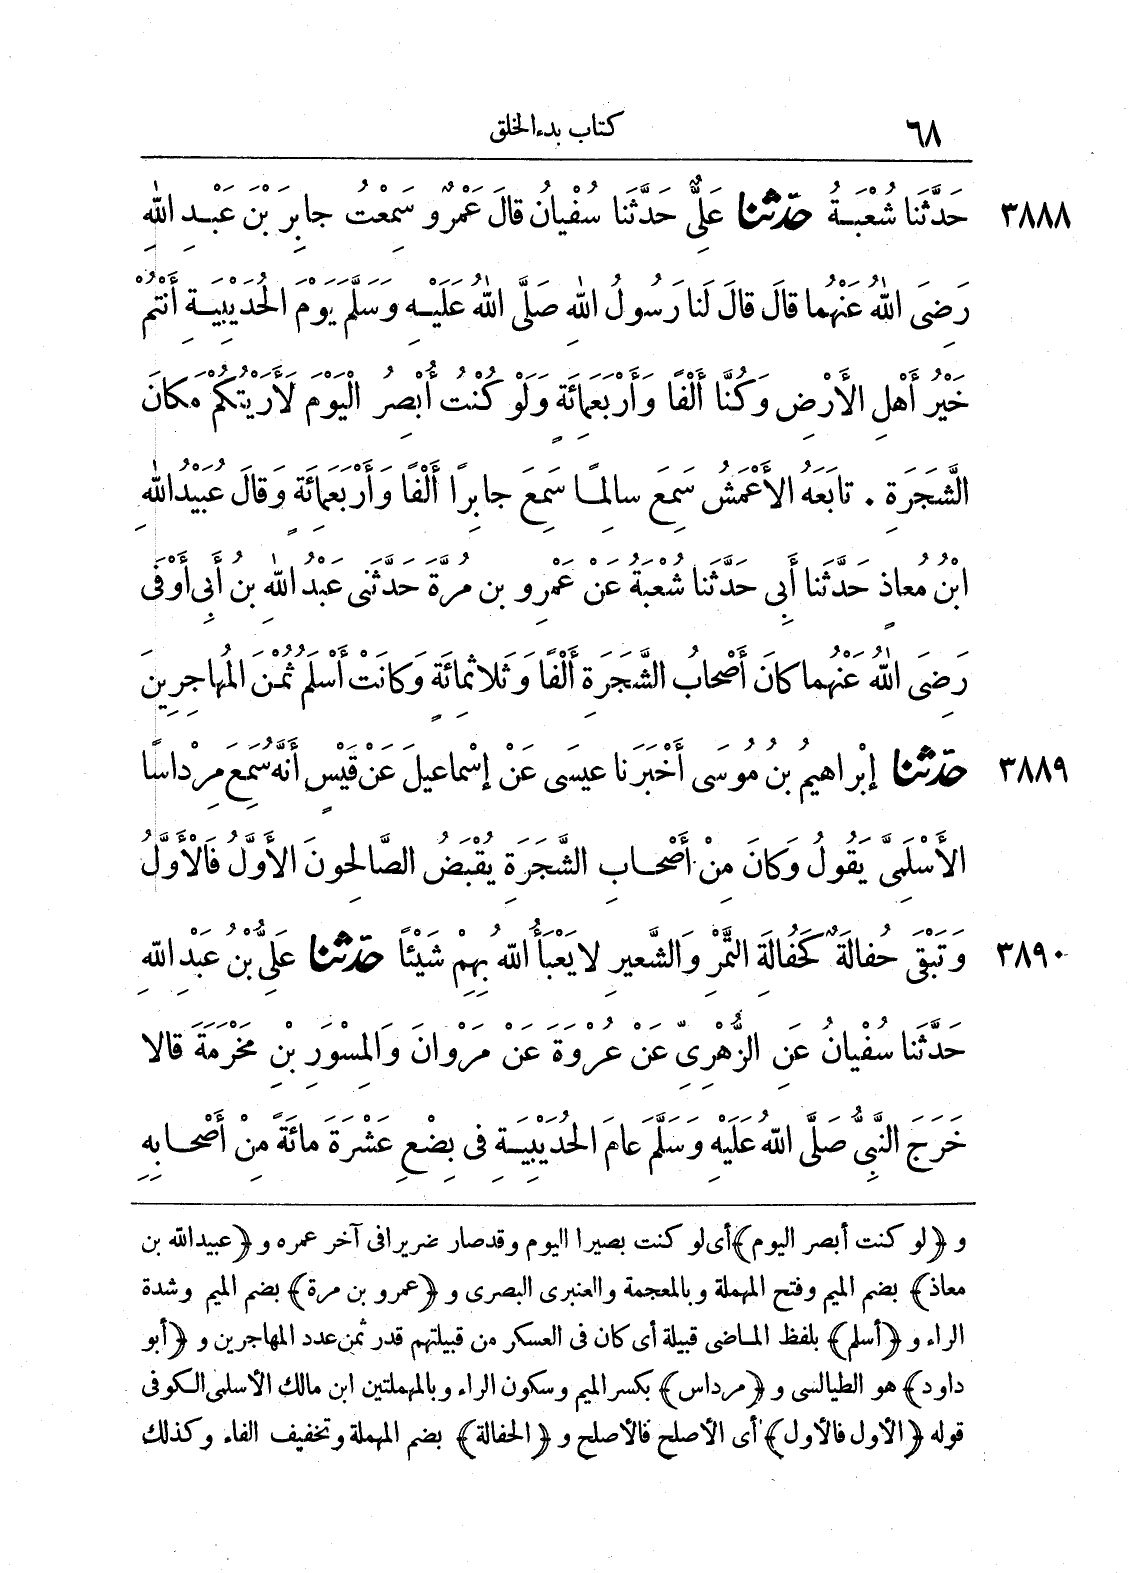 ٦٨ كتاب بدء الخلق
٣٨٨٨ حَدَّثَنا شُعْبَةُ حدّثنا عَلِيٌّ حَدَّثَنا سُفْيانُ قالَ عَمْرٌو سَمِعْتُ جابِرَ بْنَ عَبْدِ اللهِ
رَضِىَ اللهُ عَنْهُما قالَ قالَ لَنا رَسُولُ اللهِ صَلَّى اللهُ عَلَيْهِ وَسَلَّمَ يَوْمَ الحُدَيْبِيَةِ أَنْتُمْ
خَيْرُ أَهْلِ الأَرْضِ وَكُنَّا أَلْفًا وَأَرْبَعَمائَةٍ وَلَوْ كُنْتُ أُبْصِرُ اليَوْمَ لَأَرَيْتُكُمْ مَكانَ
الشَّجَرَةِ . تابَعَهُ الأَعْمَشُ سَمِعَ سالِمًا سَمِعَ جابِرًا أَلْفًا وَأَرْبَعَمائَةٍ وَقالَ عُبَيْدُ اللهِ
ابْنُ مُعاذٍ حَدَّثَنا أَبِى حَدَّثَنا شُعْبَةُ عَنْ عَمْرِو بن مُرَّةَ حَدَّثَنى عَبْدُ اللهِ بنُ أَبِى أَوْفَى
رَضِىَ اللهُ عَنْهُما كانَ أَصْحابُ الشَّجَرَةِ أَلْفًا وَثَلاثَمائَةٍ وَكانَتْ أَسْلَمُ ثُمُنَ المُهاجِرِينَ
٣٨٨٩ حدّثنا إبْراهيمُ بنُ مُوسَى أَخْبَرَنا عيسَى عَنْ إسْماعيلَ عَنْ قَيْسٍ أَنَّهُ سَمِعَ مِرْداسًا
الأَسْلَمِىَّ يَقُولُ وَكانَ مِنْ أَصْحابِ الشَّجَرَةِ يُقْبَضُ الصَّالِحونَ الأَوَّلُ فَالأَوَّلُ
٣٨٩٠ وَتَبْقَى حُفالَةٌ كَحُفالَةِ التَّمْرِ وَالشَّعيرِ لا يَعْبَأُ اللهُ بِهِمْ شَيْئًا حدّثنا عَلِىُّ بْنُ عَبْدِ اللهِ
حَدَّثَنا سُفْيانُ عَنِ الزُّهْرِىِّ عَنْ عُرْوَةَ عَنْ مَرْوانَ وَالمِسْوَرِ بْنِ مَخْرَمَةَ قالا
خَرَجَ النَّبِىُّ صَلَّى اللهُ عَلَيْهِ وَسَلَّمَ عامَ الحُدَيْبِيَةِ فى بِضْعِ عَشْرَةَ مائَةً مِنْ أَصْحابِهِ
و ﴿لو كنت أبصر اليوم﴾ أى لو كنت بصيرا اليوم وقد صار ضريرا فى آخر عمره و ﴿عبيد الله بن
معاذ﴾ بضم الميم وفتح المهملة وبالمعجمة والعنبرى البصرى و ﴿عمرو بن مرة﴾ بضم الميم وشدة
الراء و ﴿أسلم﴾ بلفظ الماضى قبيلة أى كان فى العسكر من قبيلتهم قدر ثمن عدد المهاجرين و ﴿أبو
داود﴾ هو الطيالسى و ﴿مرداس﴾ بكسر الميم وسكون الراء وبالمهملتين ابن مالك الأسلمى الكوفى
قوله ﴿الأول فالأول﴾ أى الأصلح فالأصلح و ﴿الحفالة﴾ بضم المهملة وتخفيف الفاء وكذلك